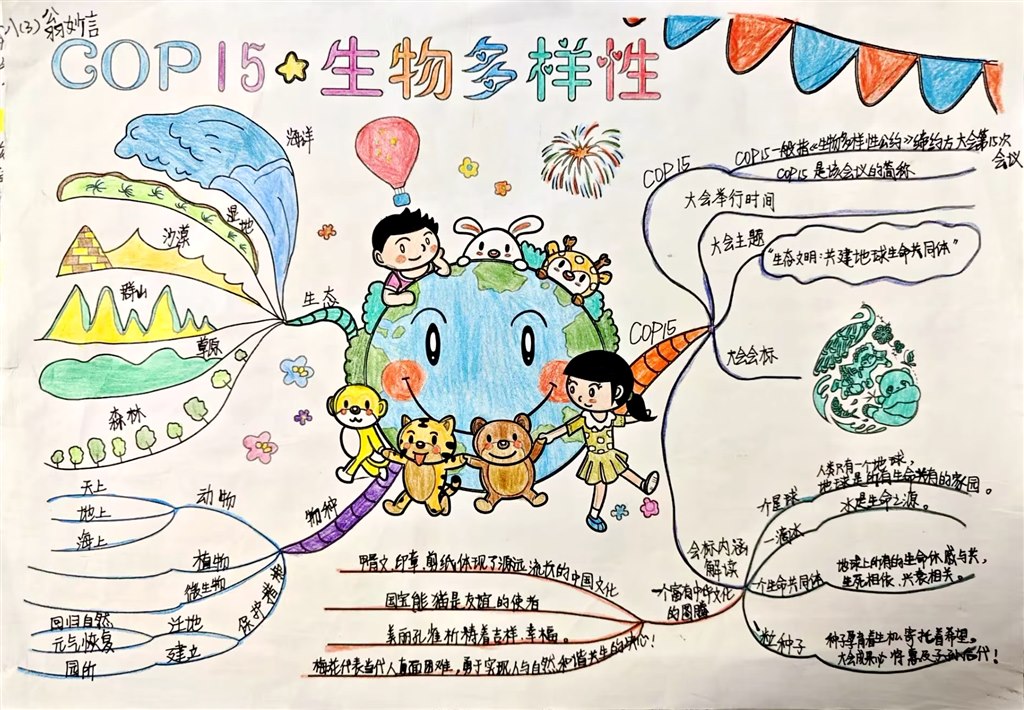 八(3)翁妙言
COP15 生物多样性
海洋
湿地
沙漠
群山
草原
森林
生态
COP15
COP15
COP15一般指《生物多样性公约》缔约方大会第15次
会议
COP15是该会议的简称
大会举行时间
大会主题
"生态文明:共建地球生命共同体"
大会会标
物种
动物
天上
地上
海上
植物
微生物
保护
迁地
回归自然
元气恢复
建立
会标内涵
解读
一个星球
人类只有一个地球,
地球是所有生命共有的家园。
一滴水
水是生命之源。
个生命共同体
地球上所有的生命休戚与共,
生死相依、兴衰相关。
粒种子
种子孕育着生机,寄托着希望。
大会成果必将惠及子孙后代!
一个富有中华文化
的图腾
甲骨文、印章、剪纸体现了源远流长的中国文化
国宝熊猫是友谊的使者
美丽孔雀祈祷着吉祥、幸福。
梅花代表当代人直面困难,勇于实现人与自然和谐共生的决心!